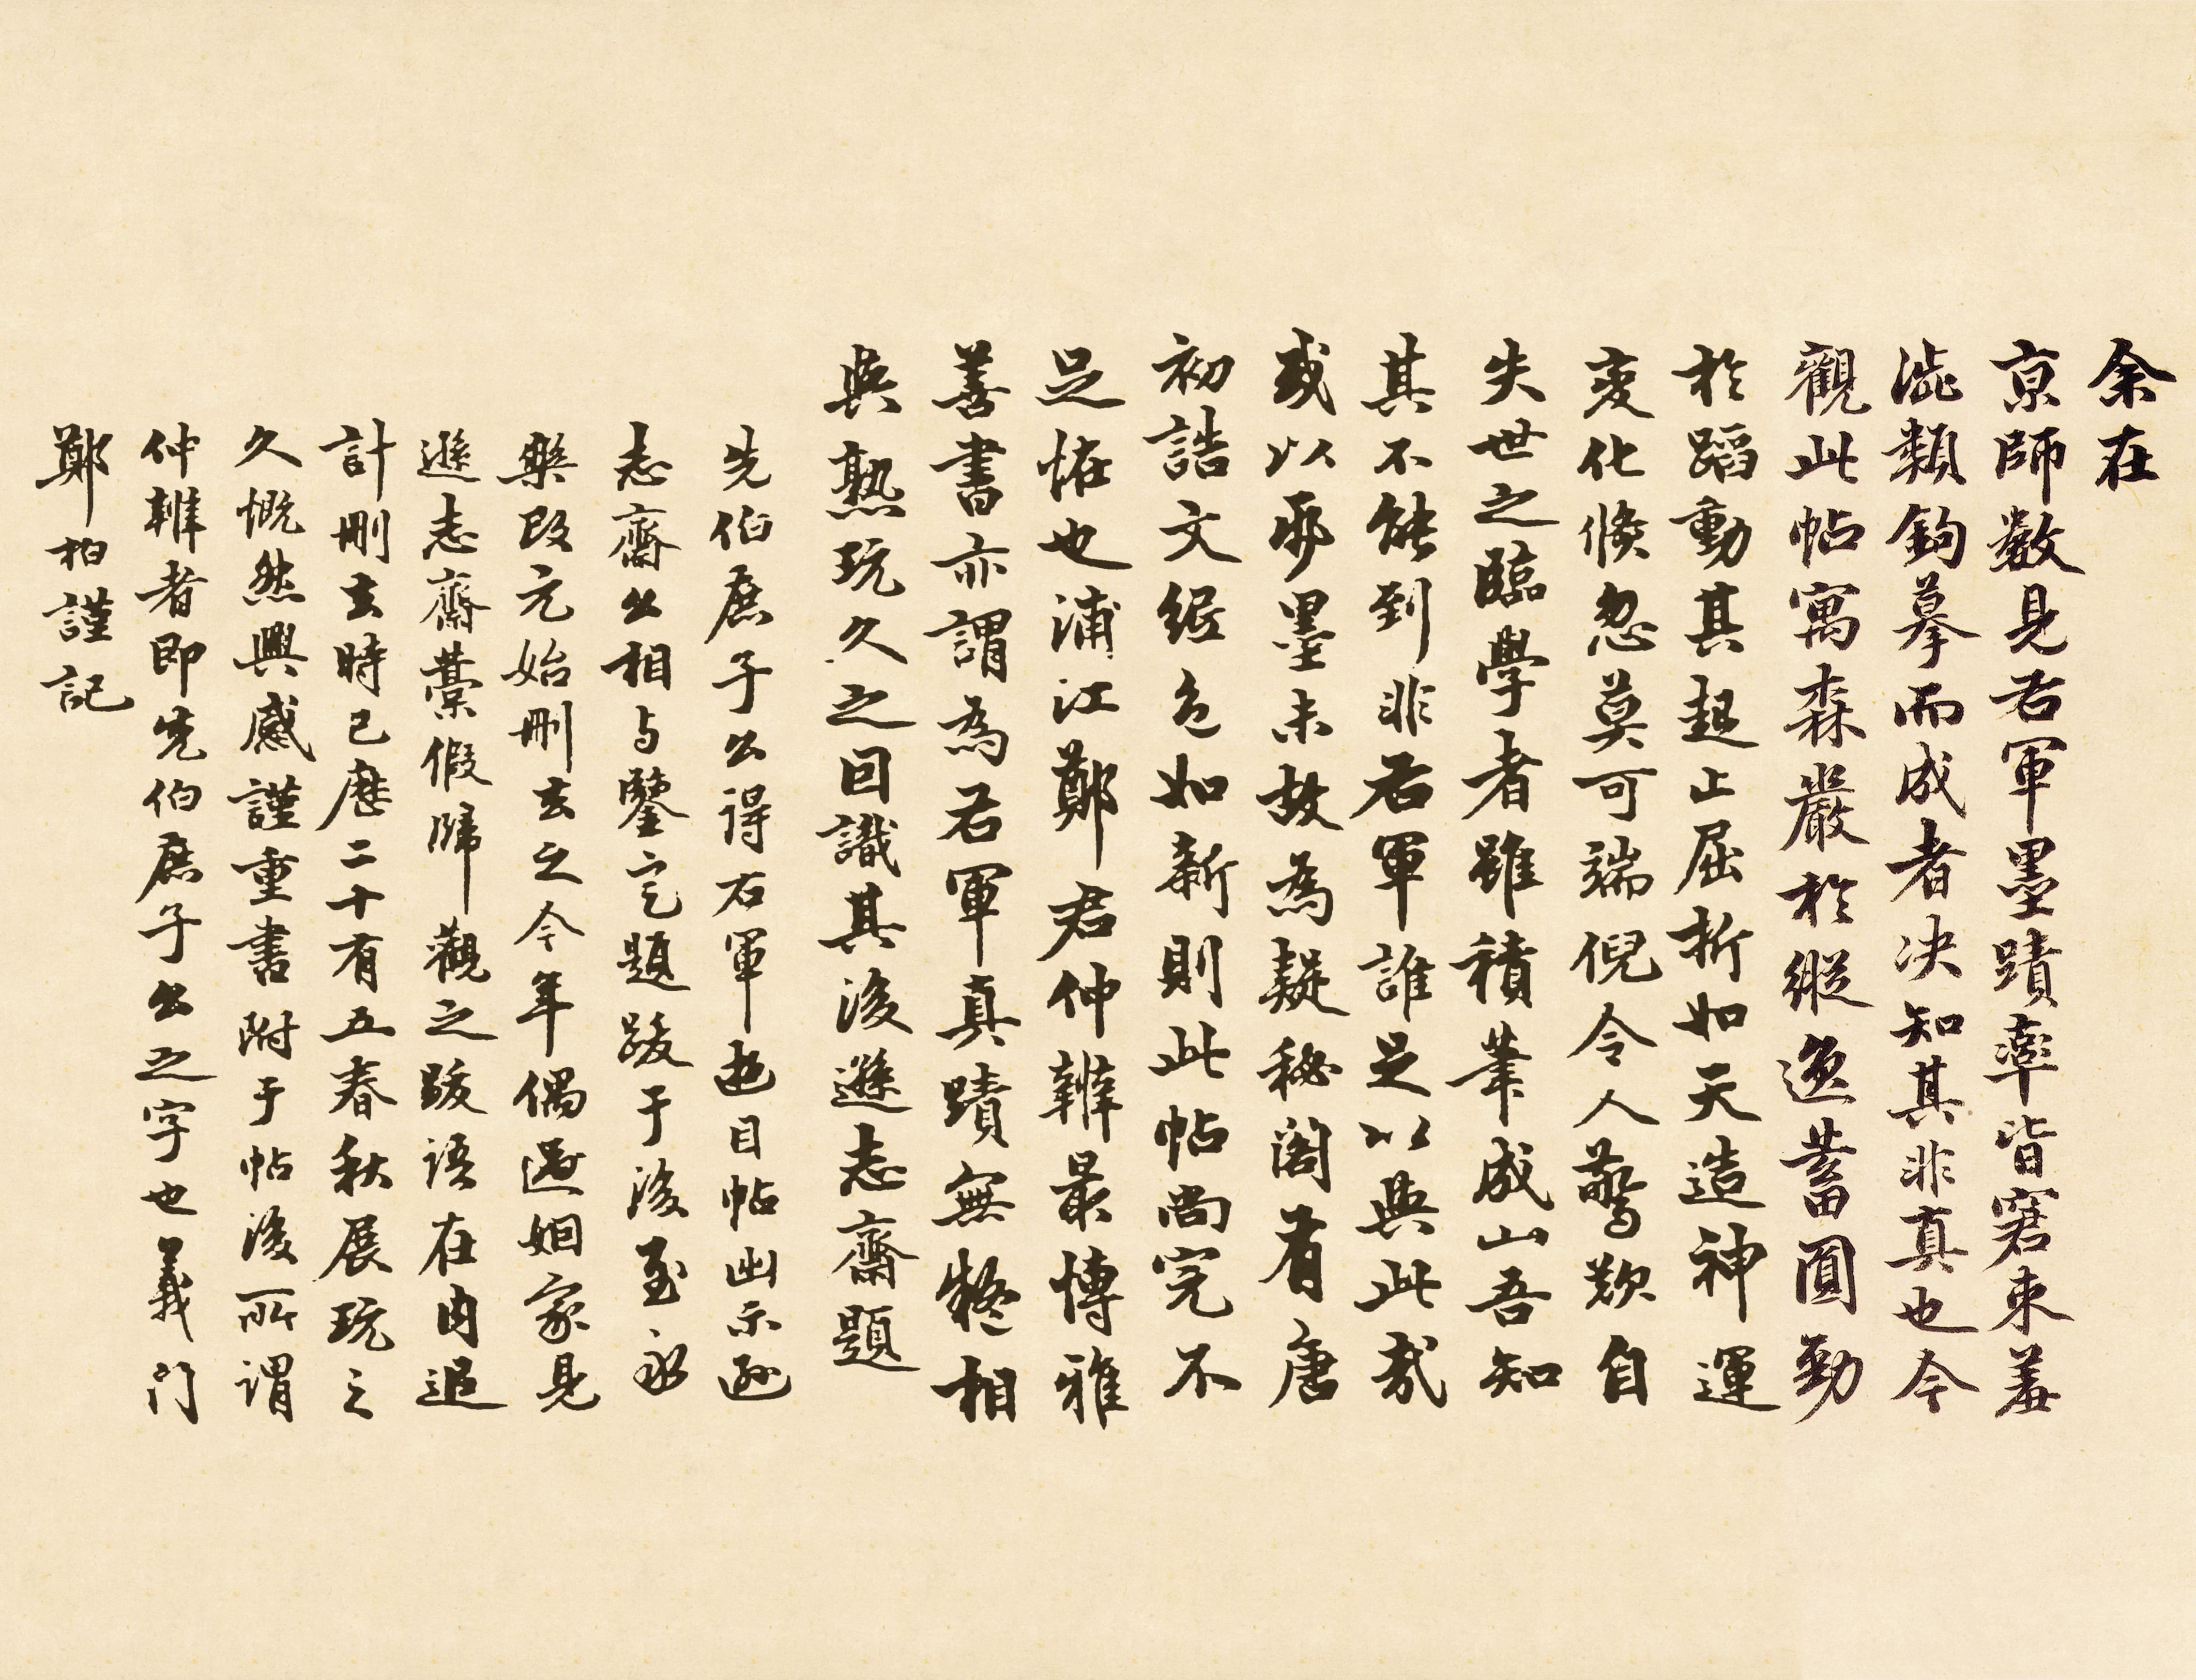 余在
京師數見右軍墨蹟率皆窘束羞
澁類鉤摹而成者决知其非真也今
觀此帖寓森嚴於縱逸蓄圓勁
於蹈動其起止屈折如天造神運
变化倏忽莫可端倪令人驚歎自
失世之臨學者雖積筆成山吾知
其不能到非右軍誰足以與此哉
或以歹墨未故為疑秘閣有唐
初誥文綬色如新則此帖尚完不
足恠也浦江鄭君仲辨最博雅
善書亦謂為右軍真蹟無疑相
與熟玩久之因識其後遜志齋題
先伯庶子公得右軍此目帖出示遜
志齋公相与鑒定題跋于後至永
樂改元始刪去之今年偶過姻家見
遜志齋藁假歸觀之跋語在內追
計刪去時已歷二十有五春秋展玩之
久慨然興感謹重書附于帖後所謂
仲辨者即先伯庶子公之字也義门
鄭柏謹記